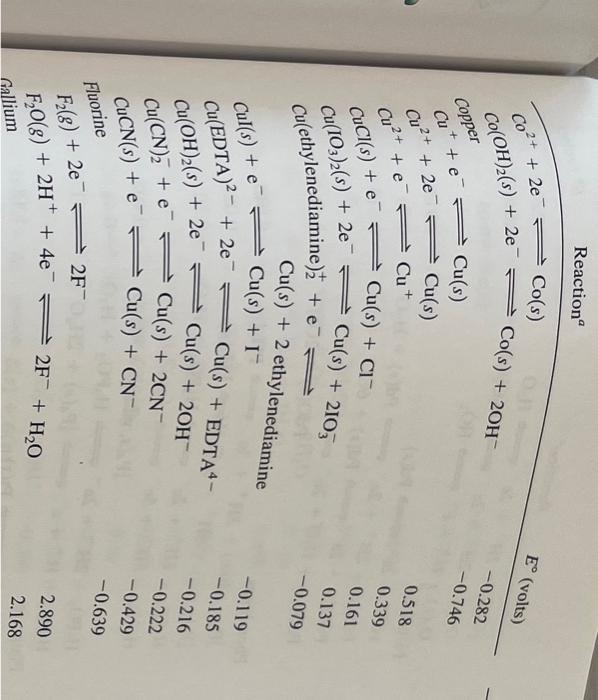 Reactionᵃ E° (volts)
Co²⁺ + 2e⁻ ⇌ Co(s) −0.282
Co(OH)₂(s) + 2e⁻ ⇌ Co(s) + 2OH⁻ −0.746
Copper
Cu⁺ + e⁻ ⇌ Cu(s) 0.518
Cu²⁺ + 2e⁻ ⇌ Cu(s) 0.339
Cu²⁺ + e⁻ ⇌ Cu⁺ 0.161
CuCl(s) + e⁻ ⇌ Cu(s) + Cl⁻ 0.137
Cu(IO₃)₂(s) + 2e⁻ ⇌ Cu(s) + 2IO₃⁻ −0.079
Cu(ethylenediamine)₂⁺ + e⁻ ⇌
Cu(s) + 2 ethylenediamine −0.119
CuI(s) + e⁻ ⇌ Cu(s) + I⁻ −0.185
Cu(EDTA)²⁻ + 2e⁻ ⇌ Cu(s) + EDTA⁴⁻ −0.216
Cu(OH)₂(s) + 2e⁻ ⇌ Cu(s) + 2OH⁻ −0.222
Cu(CN)₂⁻ + e⁻ ⇌ Cu(s) + 2CN⁻ −0.429
CuCN(s) + e⁻ ⇌ Cu(s) + CN⁻ −0.639
Fluorine
F₂(g) + 2e⁻ ⇌ 2F⁻ 2.890
F₂O(g) + 2H⁺ + 4e⁻ ⇌ 2F⁻ + H₂O 2.168
Gallium